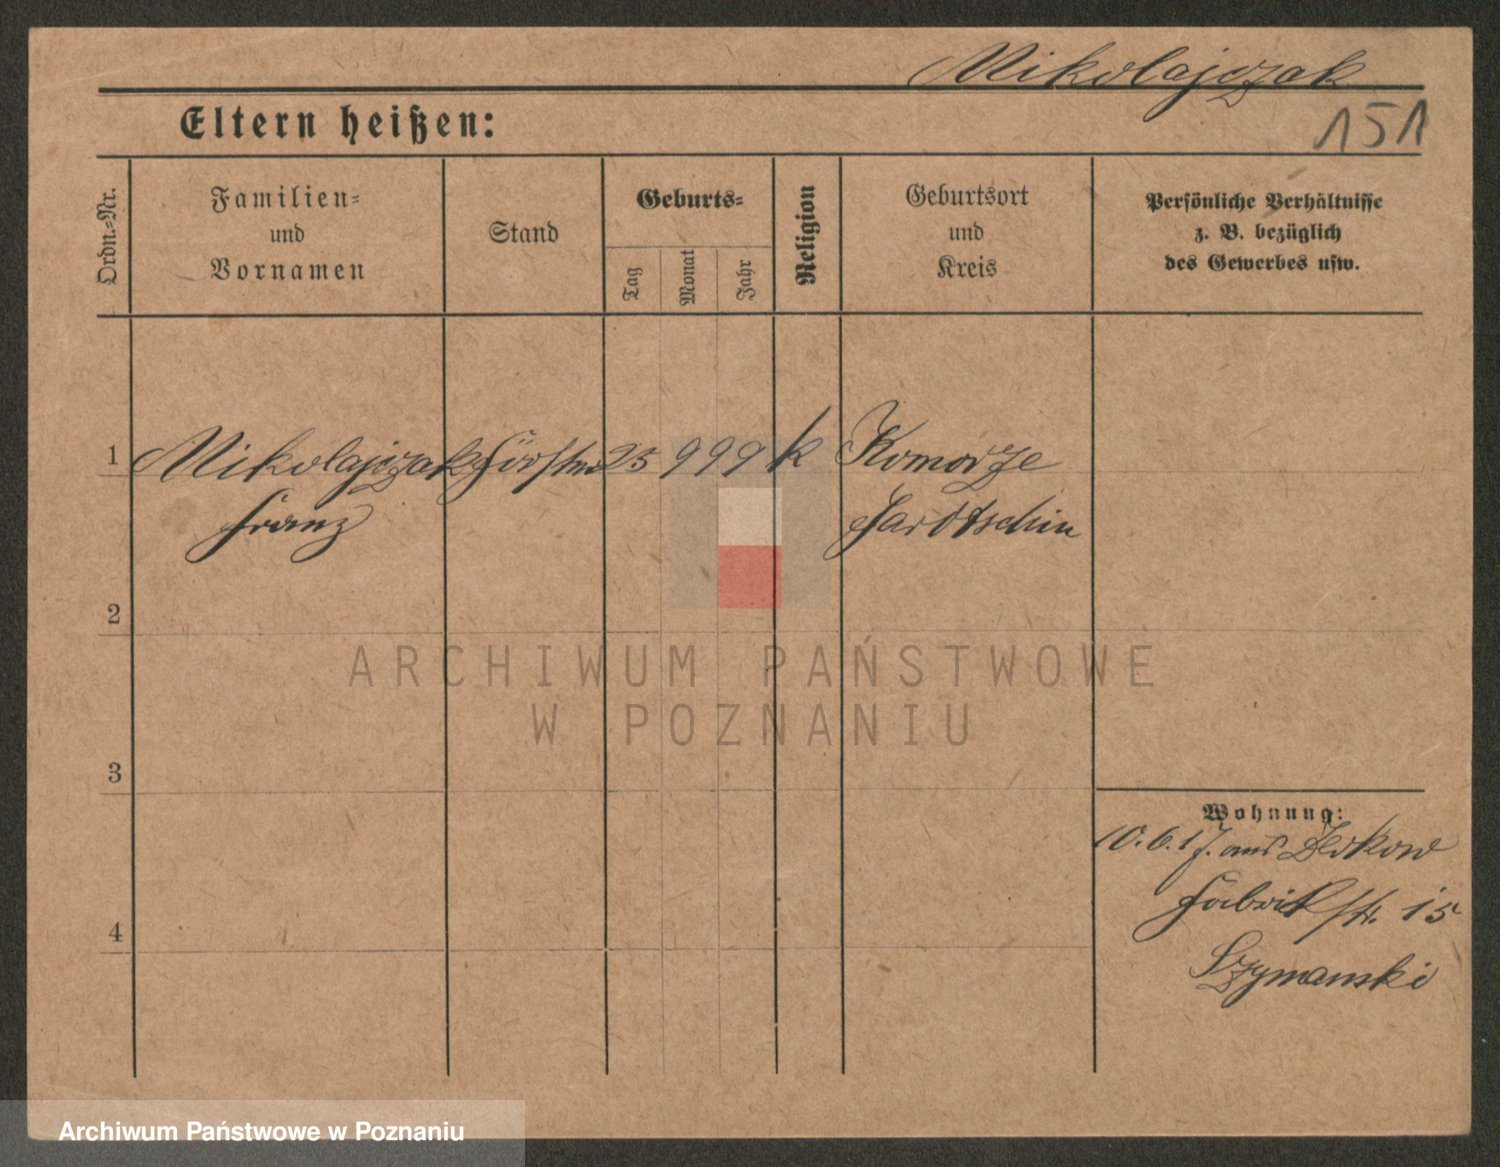 Mikolajczak
151
Eltern heißen:
Ordn.-Nr.
Familien-
und
Vornamen
Stand
Geburts-
Tag
Monat
Jahr
Religion
Geburtsort
und
Kreis
Persönliche Verhältnisse
z. B. bezüglich
des Gewerbes usw.
1 Mikolajczak 25 9 99 k Komorze
Franz Jarotschin
2
3
4
ARCHIWUM PAŃSTWOWE
W POZNANIU
Wohnung:
10.6.17. aus
Fabrikstr. 15
Szymanski
Archiwum Państwowe w Poznaniu